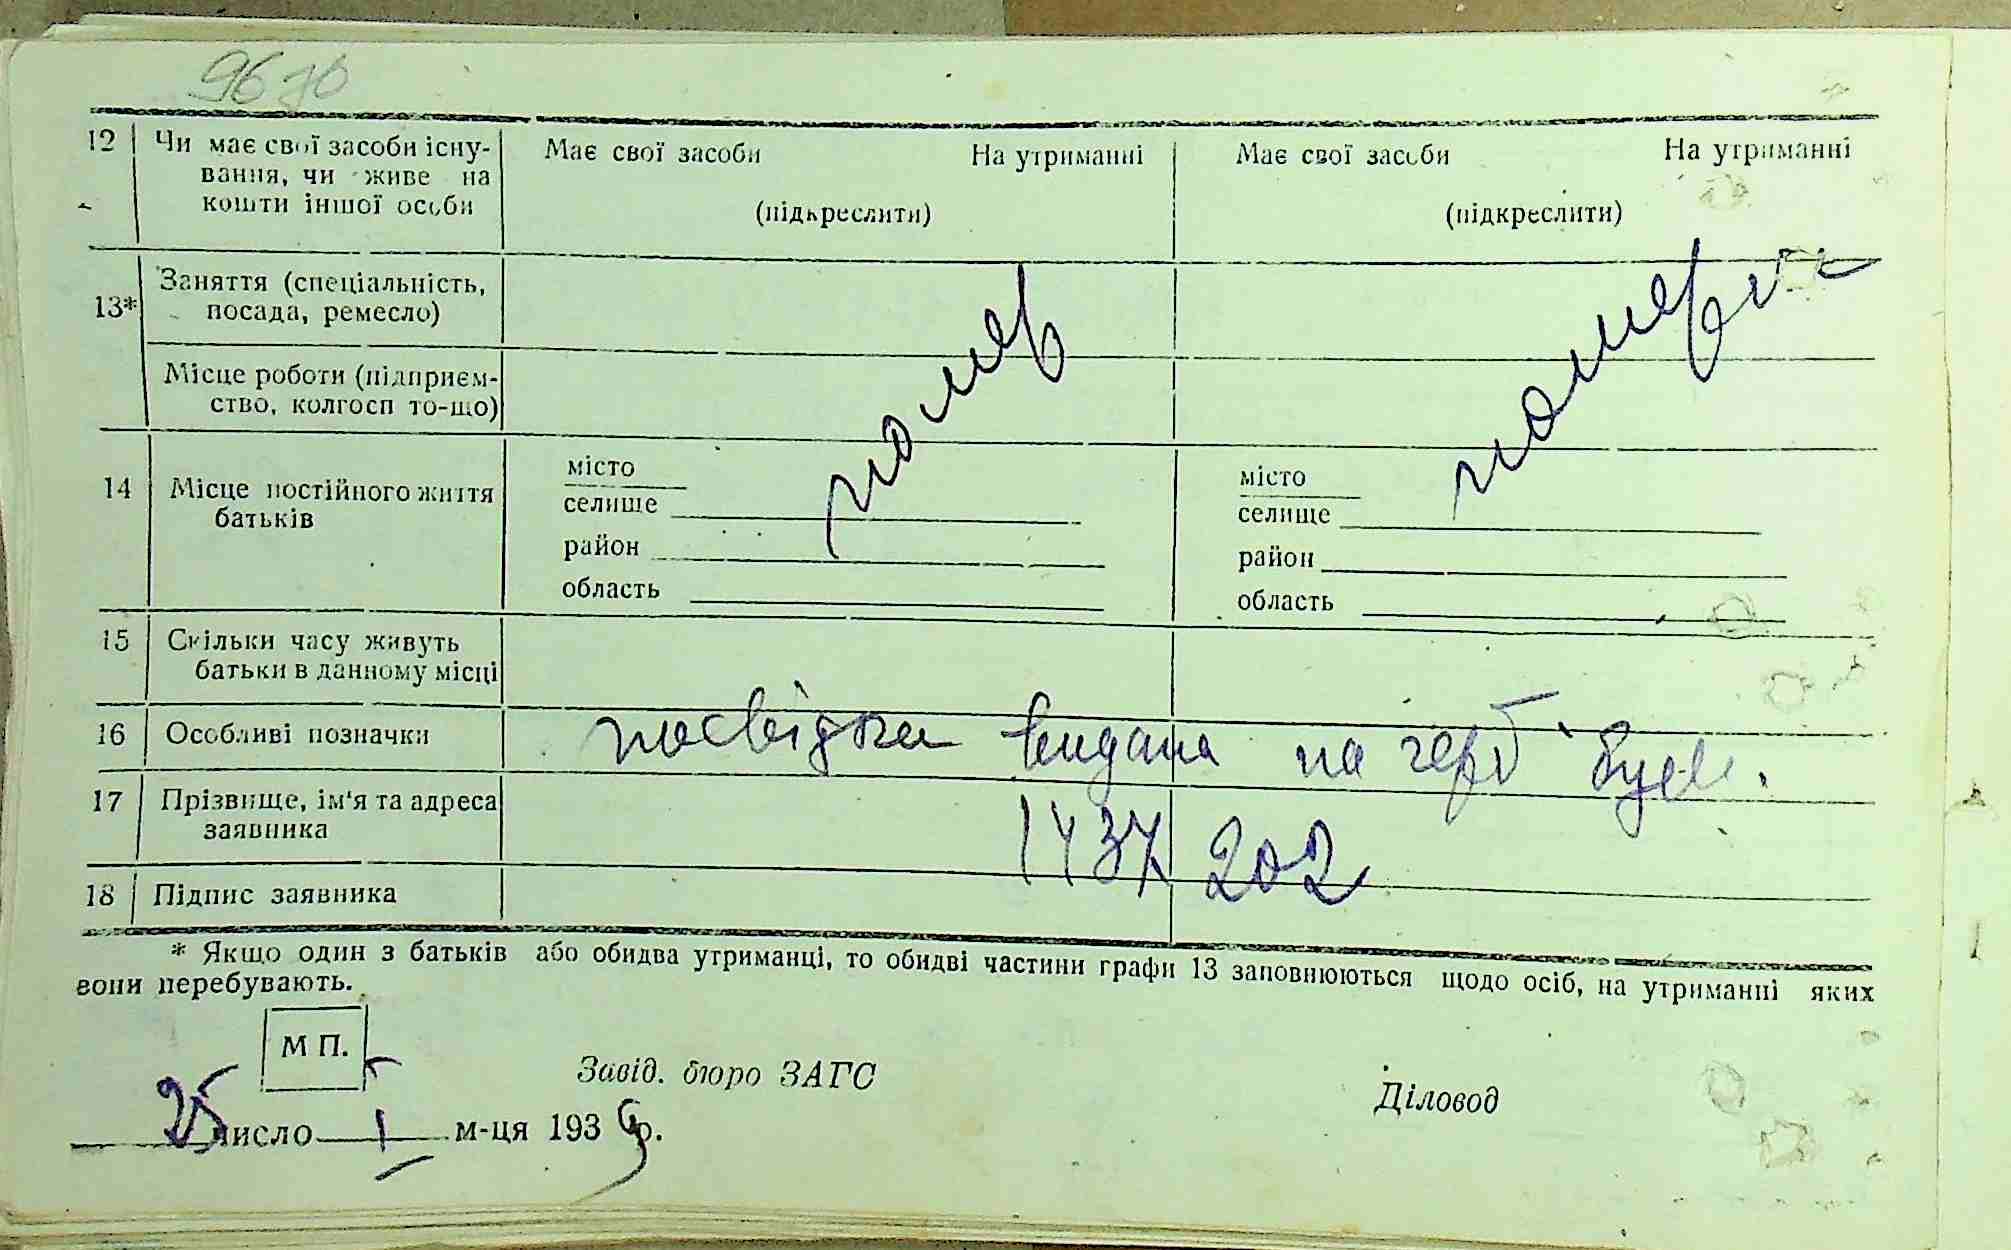 96 зв
12 Чи має свої засоби існу- Має свої засоби На утриманні Має свої засоби На утриманні
вання, чи живе на
кошти іншої особи (підкреслити) (підкреслити)
13* Заняття (спеціальність,
посада, ремесло)
Місце роботи (підприєм-
ство, колгосп то-що)
помер померла
14 Місце постійного життя
батьків
місто місто
селище селище
район район
область область
15 Скільки часу живуть
батьки в данному місці
16 Особливі позначки посвідка видана на герб
17 Прізвище, ім'я та адреса
заявника
1437 202
18 Підпис заявника
* Якщо один з батьків або обидва утриманці, то обидві частини графи 13 заповнюються щодо осіб, на утриманні яких
вони перебувають.
М П.
Завід. бюро ЗАГС Діловод
25 число 1 м-ця 1939 р.